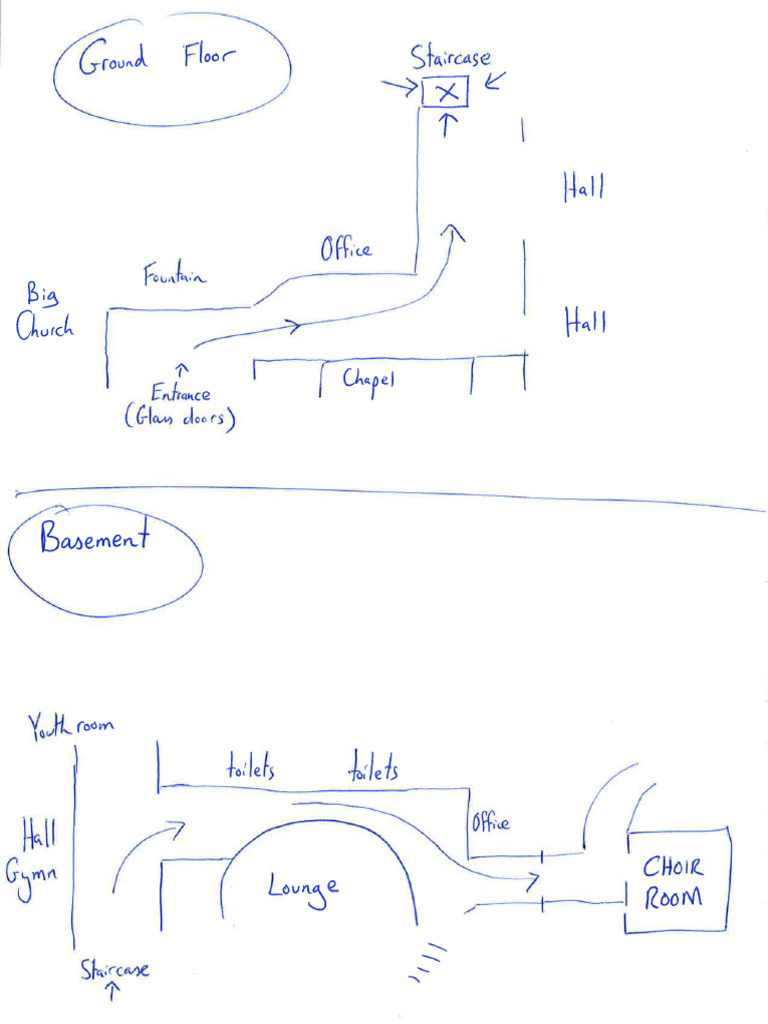 Ground Floor
Staircase
X
Hall
Office
Fountain
Big
Church
Hall
Chapel
Entrance
(Glass doors)
Basement
Youth room
toilets toilets
Office
Hall
Gymn
CHOIR
ROOM
Lounge
Staircase